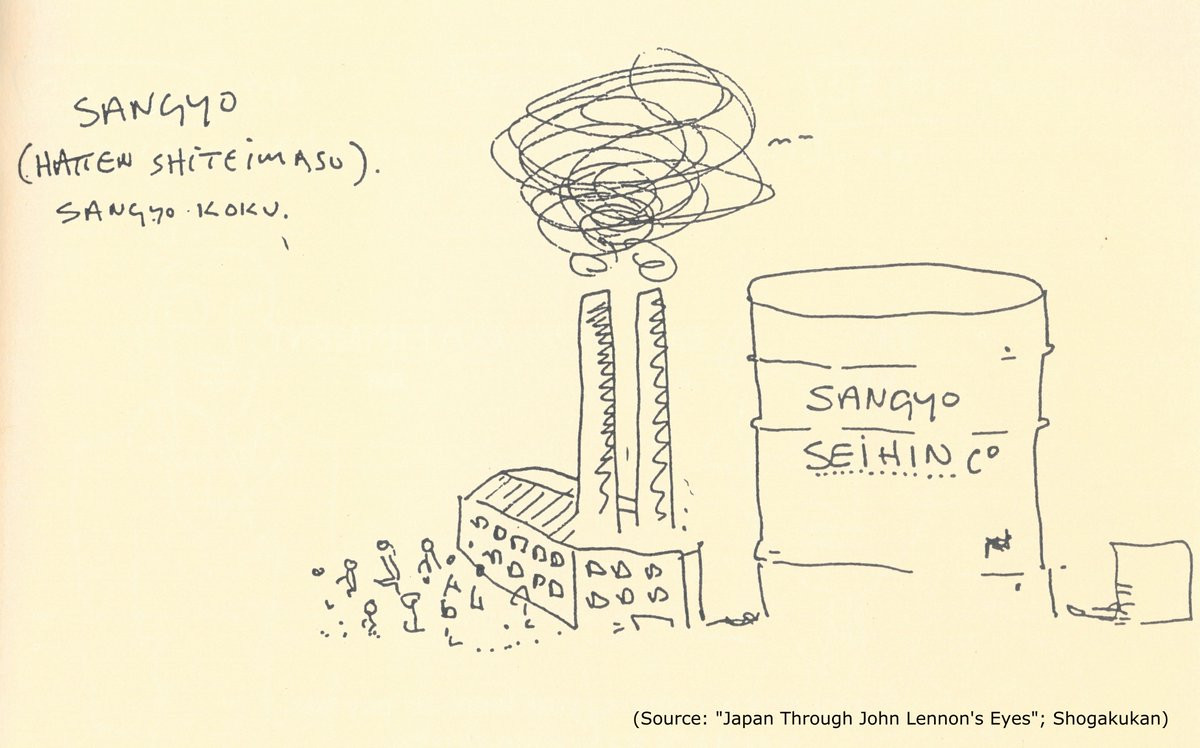 SANGYO
(HATTEN SHITEIMASU).
SANGYO KOKU.
SANGYO
SEIHIN Co
(Source: "Japan Through John Lennon's Eyes"; Shogakukan)